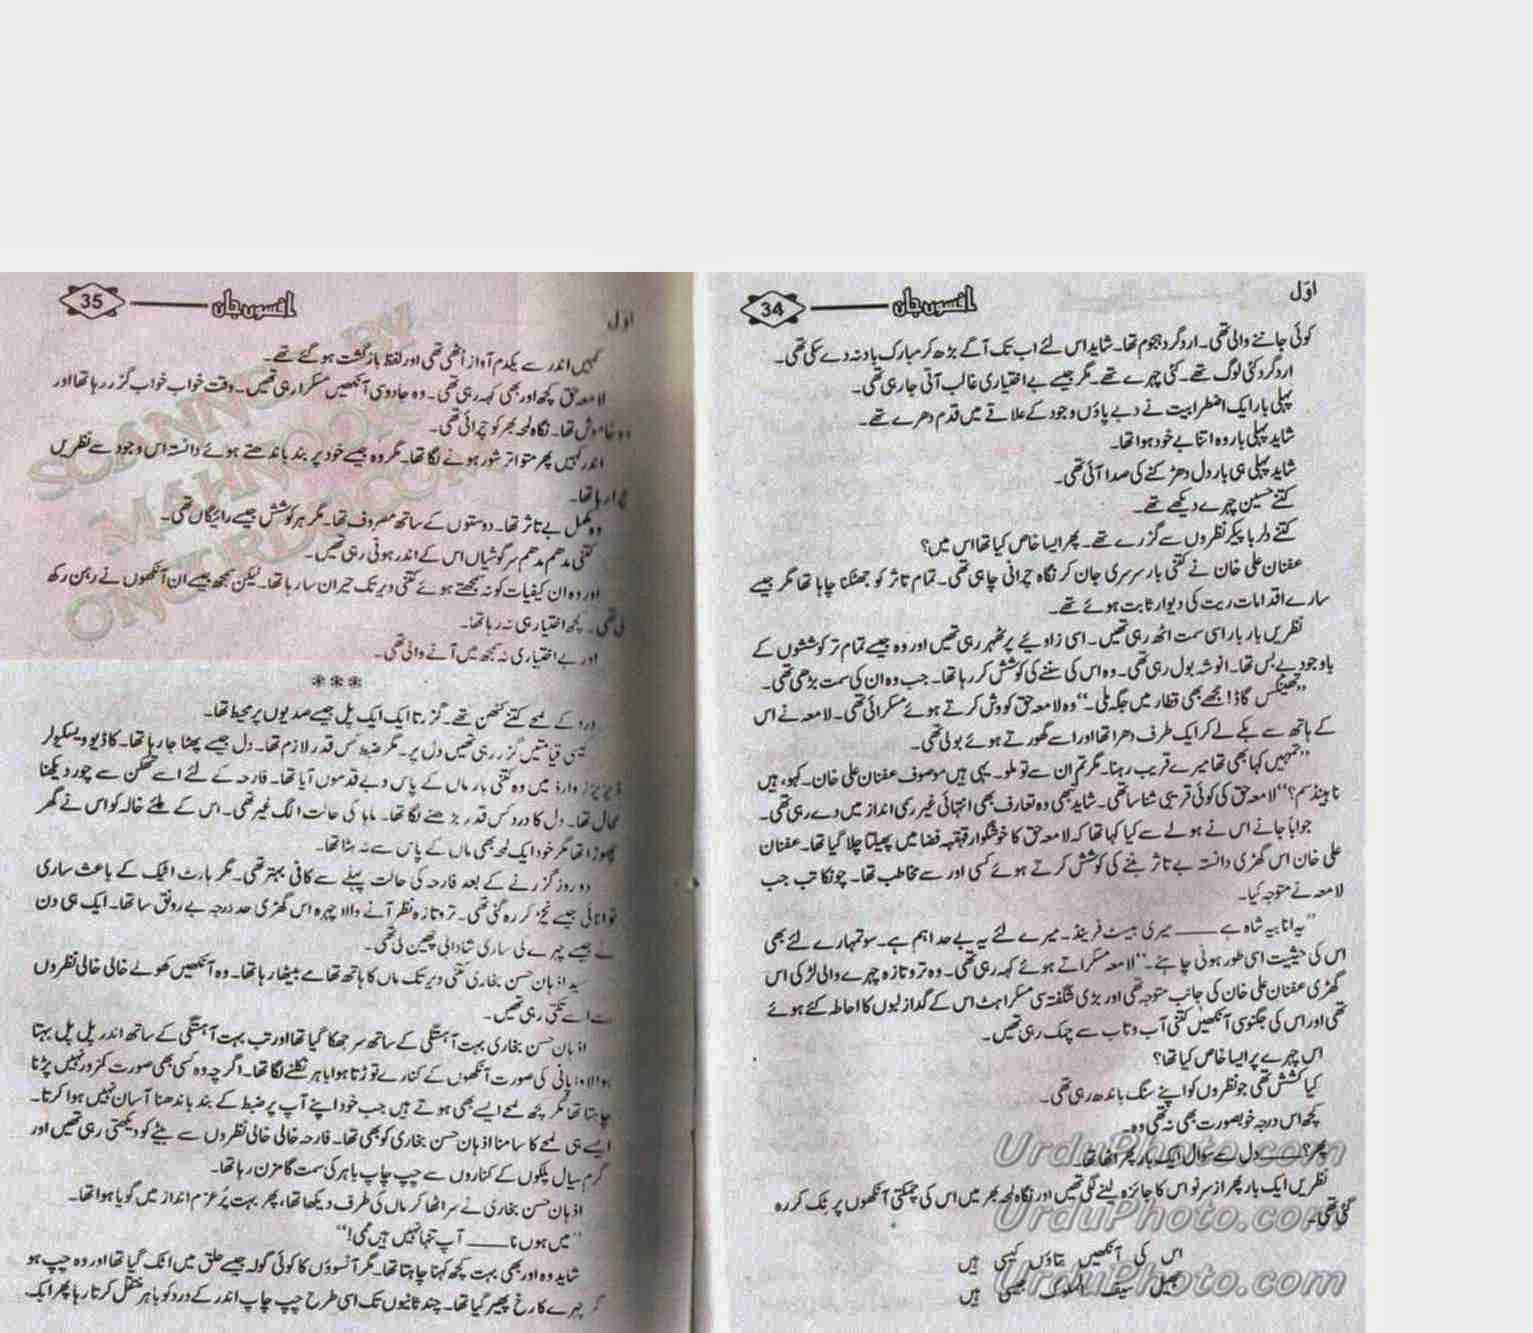 اوّل
افسوں جان
34
کوئی جاننے والی تھی۔ اردگرد ہجوم تھا۔ شاید اس لئے اب تک آگے بڑھ کر مبارک باد نہ دے سکی تھی۔
اردگرد کئی لوگ تھے۔ کئی چہرے تھے۔ مگر جیسے بے اختیاری غالب آتی جا رہی تھی۔
پہلی بار ایک اضطرابیت نے دبے پاؤں وجود کے علاقے میں قدم دھرے تھے۔
شاید پہلی بار وہ اتنا بے خود ہوا تھا۔
شاید پہلی ہی بار دل دھڑکنے کی صدا آئی تھی۔
کتنے حسین چہرے دیکھے تھے۔
کتنے دلربا پیکر نظروں سے گزرے تھے۔ پھر ایسا خاص کیا تھا اس میں؟
عفنان علی خان نے کتنی بار سرسری جان کر نگاہ چرانی چاہی تھی۔ تمام تاثر کو جھٹکنا چاہا تھا مگر جیسے
سارے اقدامات ریت کی دیوار ثابت ہوئے تھے۔
نظریں بار بار اسی سمت اٹھ رہی تھیں۔ اسی زاویئے پر ٹھہر رہی تھیں اور وہ جیسے تمام تر کوششوں کے
باوجود بے بس تھا۔ انوشہ بول رہی تھی۔ وہ اس کی سننے کی کوشش کر رہا تھا۔ جب وہ ان کی سمت بڑھی تھی۔
”تھینکس گاڈ! مجھے بھی قطار میں جگہ ملی۔“ وہ لامعہ حق کو وش کرتے ہوئے مسکرائی تھی۔ لامعہ نے اس
کے ہاتھ سے بکے لے کر ایک طرف دھرا تھا اور اسے گھورتے ہوئے بولی تھی۔
”تمہیں کہا بھی تھا میرے قریب رہنا۔ مگر تم ان سے تو ملو۔ یہی ہیں موصوف عفنان علی خان۔ کہو، ہیں
نا ہینڈسم؟“ لامعہ حق کی کوئی قریبی شناسا تھی۔ شاید تبھی وہ تعارف بھی انتہائی غیر رسمی انداز میں دے رہی تھی۔
جواباً جانے اس نے ہولے سے کیا کہا تھا کہ لامعہ حق کا خوشگوار قہقہہ فضا میں پھیلتا چلا گیا تھا۔ عفنان
علی خان اس گھڑی دانستہ بے تاثر بننے کی کوشش کرتے ہوئے کسی اور سے مخاطب تھا۔ چونکا تب جب
لامعہ نے متوجہ کیا۔
”یہ انابیہ شاہ ہے ـــــ میری بیسٹ فرینڈ۔ میرے لئے یہ بے حد اہم ہے۔ سو تمہارے لئے بھی
اس کی حیثیت اسی طور ہونی چاہئے۔“ لامعہ مسکراتے ہوئے کہہ رہی تھی۔ وہ تروتازہ چہرے والی لڑکی اس
گھڑی عفنان علی خان کی جانب متوجہ تھی اور بڑی شگفتہ سی مسکراہٹ اس کے گداز لبوں کا احاطہ کئے ہوئے
تھی اور اس کی جگنوسی آنکھیں کتنی آب و تاب سے چمک رہی تھیں۔
اس چہرے پر ایسا خاص کیا تھا؟
کیا کشش تھی جو نظروں کو اپنے سنگ باندھ رہی تھی۔
کچھ اس درجہ خوبصورت بھی نہ تھی وہ۔
پھر؟ ـــــ دل سے سوال ایک بار پھر اٹھا تھا۔
نظریں ایک بار پھر از سر نو اس کا جائزہ لینے لگی تھیں اور نگاہ لمحہ بھر میں اس کی چمکتی آنکھوں پر ٹک کر رہ
گئی تھی۔
اس کی آنکھیں بتاؤں کیسی ہیں
جھیل سیف الملوک جیسی ہیں
UrduPhoto.com
UrduPhoto.com
UrduPhoto.com
اوّل
افسوں جان
35
کہیں اندر سے یکدم آواز اُٹھی تھی اور لفظ بازگشت ہو گئے تھے۔
لامعہ حق کچھ اور بھی کہہ رہی تھی۔ وہ جادوسی آنکھیں مسکرا رہی تھیں۔ وقت خواب خواب گزر رہا تھا اور
وہ خاموش تھا۔ نگاہ لمحہ بھر کو چرائی تھی۔
اندر کہیں پھر متواتر شور ہونے لگا تھا۔ مگر وہ جیسے خود پر بند باندھتے ہوئے دانستہ اس وجود سے نظریں
چرا رہا تھا۔
وہ مکمل بے تاثر تھا۔ دوستوں کے ساتھ مصروف تھا۔ مگر ہر کوشش جیسے رائیگاں تھی۔
کتنی مدھم مدھم سرگوشیاں اس کے اندر ہوتی رہی تھیں۔
اور وہ ان کیفیات کو نہ سمجھتے ہوئے کتنی دیر تک حیران سا رہا تھا۔ لیکن سمجھ جیسے ان آنکھوں نے رہن رکھ
لی تھی۔ کچھ اختیار ہی نہ رہا تھا۔
اور بے اختیاری نہ سمجھ میں آنے والی تھی۔
***
درد کے لمحے کتنے کٹھن تھے۔ گزرتا ایک ایک پل جیسے صدیوں پر محیط تھا۔
کیسی قیامتیں گزر رہی تھیں دل پر۔ مگر ضبط کس قدر لازم تھا۔ دل جیسے پھٹا جا رہا تھا۔ کاڈیو ویسکیولر
ڈیزیز وارڈ میں وہ کتنی بار ماں کے پاس دبے قدموں آیا تھا۔ فارحہ کے لئے اسے تھکن سے چور دیکھنا
محال تھا۔ دل کا درد کس قدر بڑھنے لگا تھا۔ ماہا کی حالت الگ غیر تھی۔ اس کے لئے خالہ کو اس نے گھر
چھوڑا تھا مگر خود ایک لمحہ بھی ماں کے پاس سے نہ ہٹا تھا۔
دو روز گزرنے کے بعد فارحہ کی حالت پہلے سے کافی بہتر تھی۔ مگر ہارٹ اٹیک کے باعث ساری
توانائی جیسے نچڑ کر رہ گئی تھی۔ تروتازہ نظر آنے والا چہرہ اس گھڑی حد درجہ بے رونق سا تھا۔ ایک ہی دن
نے جیسے چہرے کی ساری شادابی چھین لی تھی۔
سید اذہان حسن بخاری کتنی دیر تک ماں کا ہاتھ تھامے بیٹھا رہا تھا۔ وہ آنکھیں کھولے خالی خالی نظروں
سے اسے تکتی رہی تھیں۔
اذہان حسن بخاری بہت آہستگی کے ساتھ سر جھکا گیا تھا اور تب بہت آہستگی کے ساتھ اندر پل پل بہتا
ہوا لاوا پانی کی صورت آنکھوں کے کنارے توڑتا ہوا باہر نکلنے لگا تھا۔ اگرچہ وہ کسی بھی صورت کمزور نہیں پڑنا
چاہتا تھا مگر کچھ لمحے ایسے بھی ہوتے ہیں جب خود اپنے آپ پر ضبط کے بند باندھنا آسان نہیں ہوا کرتا۔
ایسے ہی لمحے کا سامنا اذہان حسن بخاری کو بھی تھا۔ فارحہ خالی خالی نظروں سے بیٹے کو دیکھتی رہی تھیں اور
گرم سیال پلکوں کے کناروں سے چپ چاپ باہر کی سمت گامزن رہا تھا۔
اذہان حسن بخاری نے سر اٹھا کر ماں کی طرف دیکھا تھا، پھر بہت پُر عزم انداز میں گویا ہوا تھا۔
”میں ہوں نا ـــــ آپ تنہا نہیں ہیں ممی!“
شاید وہ اور بھی بہت کچھ کہنا چاہتا تھا۔ مگر آنسوؤں کا کوئی گولہ جیسے حلق میں اٹک گیا تھا اور وہ چپ ہو
کر چہرے کا رخ پھیر گیا تھا۔ چند ثانیوں تک اسی طرح چپ چاپ اندر کے درد کو باہر منتقل کرتا رہا پھر ایک